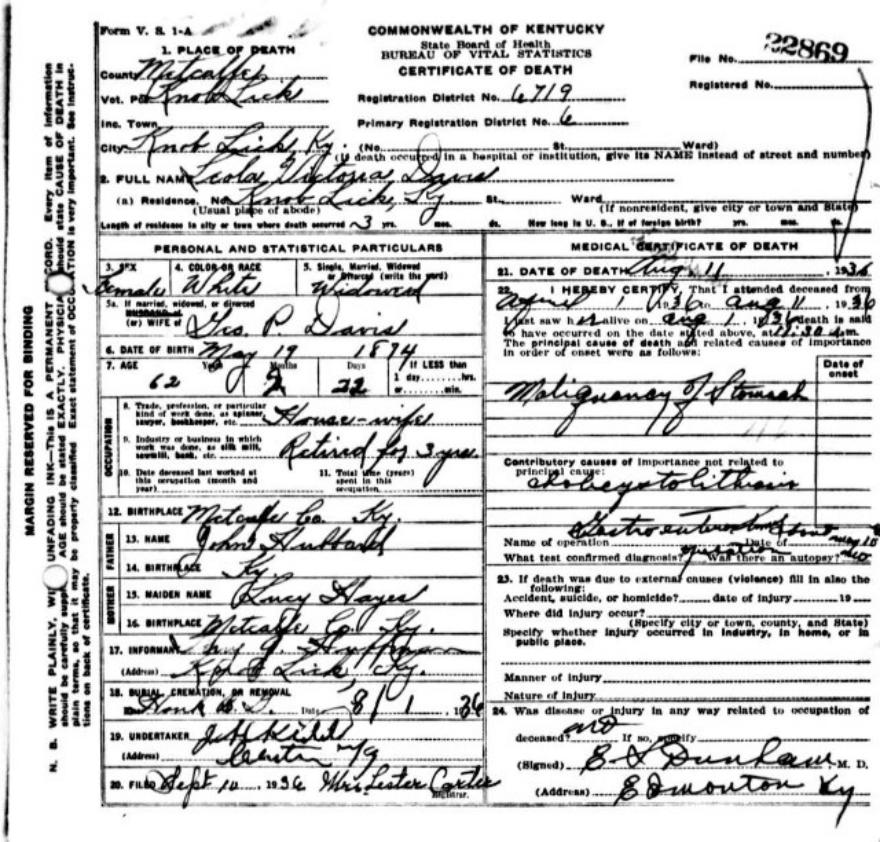 Form V. S. 1-A
COMMONWEALTH OF KENTUCKY
State Board of Health
BUREAU OF VITAL STATISTICS
CERTIFICATE OF DEATH
File No. 22869
Registered No.
1. PLACE OF DEATH
County Metcalfe
Vot. Knob Lick
Registration District No. 6719
Inc. Town
Primary Registration District No. 6
City Knob Lick, Ky. (No. St. Ward)
(If death occurred in a hospital or institution, give its NAME instead of street and number)
2. FULL NAME Leola Victoria Davis
(a) Residence. No. Knob Lick, Ky. St. Ward
(Usual place of abode) (If nonresident, give city or town and State)
Length of residence in city or town where death occurred 3 yrs. mos. ds. How long in U. S., if of foreign birth? yrs. mos. ds.
MARGIN RESERVED FOR BINDING
PERSONAL AND STATISTICAL PARTICULARS
3. SEX Female
4. COLOR OR RACE White
5. Single, Married, Widowed or Divorced (write the word) Widowed
5a. If married, widowed, or divorced
HUSBAND of
(or) WIFE of Geo. P. Davis
6. DATE OF BIRTH May 19 1874
7. AGE 62 Years 2 Months 22 Days If LESS than
1 day hrs.
or min.
OCCUPATION
8. Trade, profession, or particular
kind of work done, as spinner,
sawyer, bookkeeper, etc. House-wife
9. Industry or business in which
work was done, as silk mill,
sawmill, bank, etc. Retired for 3 yrs.
10. Date deceased last worked at
this occupation (month and
year)
11. Total time (years)
spent in this
occupation
12. BIRTHPLACE Metcalfe Co. Ky.
FATHER
13. NAME John Hubbard
14. BIRTHPLACE Ky
MOTHER
15. MAIDEN NAME Lucy Hayes
16. BIRTHPLACE Metcalfe Co. Ky.
17. INFORMANT Huffman
(Address) Knob Lick, Ky.
18. BURIAL, CREMATION, OR REMOVAL
Date 8/1 1936
19. UNDERTAKER
(Address)
20. FILED Sept 10 1936 Mrs Lester Carter
Registrar.
MEDICAL CERTIFICATE OF DEATH
21. DATE OF DEATH Aug 11, 1936
22. I HEREBY CERTIFY, That I attended deceased from
April 1 1936 to Aug 11, 1936
I last saw her alive on Aug 1, 1936 death is said
to have occurred on the date stated above, at 11:30 m.
The principal cause of death and related causes of importance
in order of onset were as follows:
Date of
onset
Malignancy of Stomach
Contributory causes of importance not related to
principal cause:
Name of operation Date of May 10
What test confirmed diagnosis? operation Was there an autopsy? no
23. If death was due to external causes (violence) fill in also the
following:
Accident, suicide, or homicide? date of injury 19
Where did injury occur?
(Specify city or town, county, and State)
Specify whether injury occurred in industry, in home, or in
public place.
Manner of injury
Nature of injury
24. Was disease or injury in any way related to occupation of
deceased? no If so, specify
(Signed) E S Dunham, M. D.
(Address) Edmonton Ky